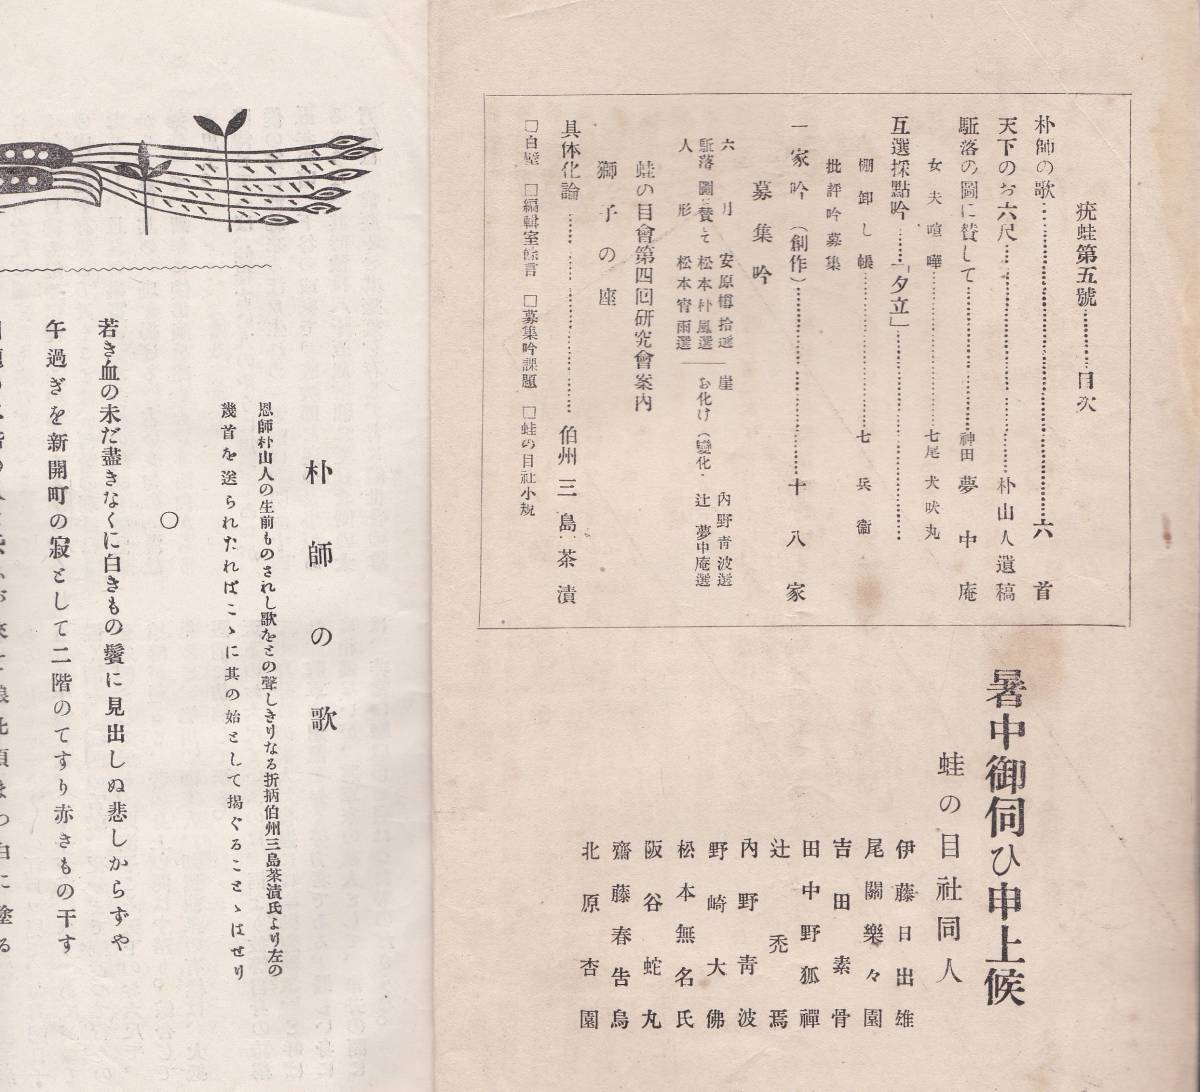 疣蛙第五號…………目次
朴師の歌……………………………………六首
天下のお六尺……………………朴山人遺稿
駈落の圖に賛して……………………神田 夢中庵
女夫喧嘩……………………七尾 犬吠丸
互選採點吟……「夕立」……………………
棚卸し帳……………………七兵衞
批評吟募集
一家吟(創作)……………………十八家
募集吟
六月 安原樽拾選
駈落圖に賛して 松本朴風選
人形 松本宵雨選
崖 內野靑波選
お化け(變化) 辻夢中庵選
蛙の目會第四回研究會案內
獅子の座
具体化論……………………伯州 三島茶漬
□白壁 □編輯室餘言 □募集吟課題 □蛙の目社小規
暑中御伺ひ申上候
蛙の目社同人
伊藤日出雄
尾關樂々園
吉田素骨
田中野狐禪
辻禿焉
內野靑波
野崎大佛
松本無名氏
阪谷蛇丸
齋藤春告鳥
北原杏園
朴師の歌
恩師朴山人の生前ものされし歌をとの聲しきりなる折柄伯州三島茶漬氏より左の
幾首を送られたればこゝに其の始として揭ぐることゝはせり
〇
若き血の未だ盡きなくに白きもの鬢に見出しぬ悲しからずや
午過ぎを新開町の寂として二階のてすり赤きもの干す